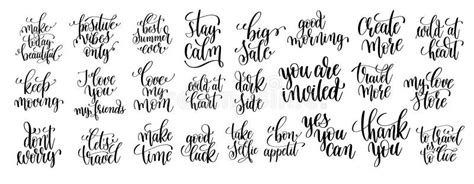 make
today
beautiful
positive
vibes
only
best
summer
ever
stay
calm
big
sale
good
morning
create
more
wild at
heart
keep
moving
I love
you
my friends
love
my
mom
wild at
heart
dark
side
you are
invited
travel
more
my love
store
don't
worry
let's
travel
make
time
good
luck
take
selfie
bon
appetit
yes
you
can
thank
you
to travel
is
to live